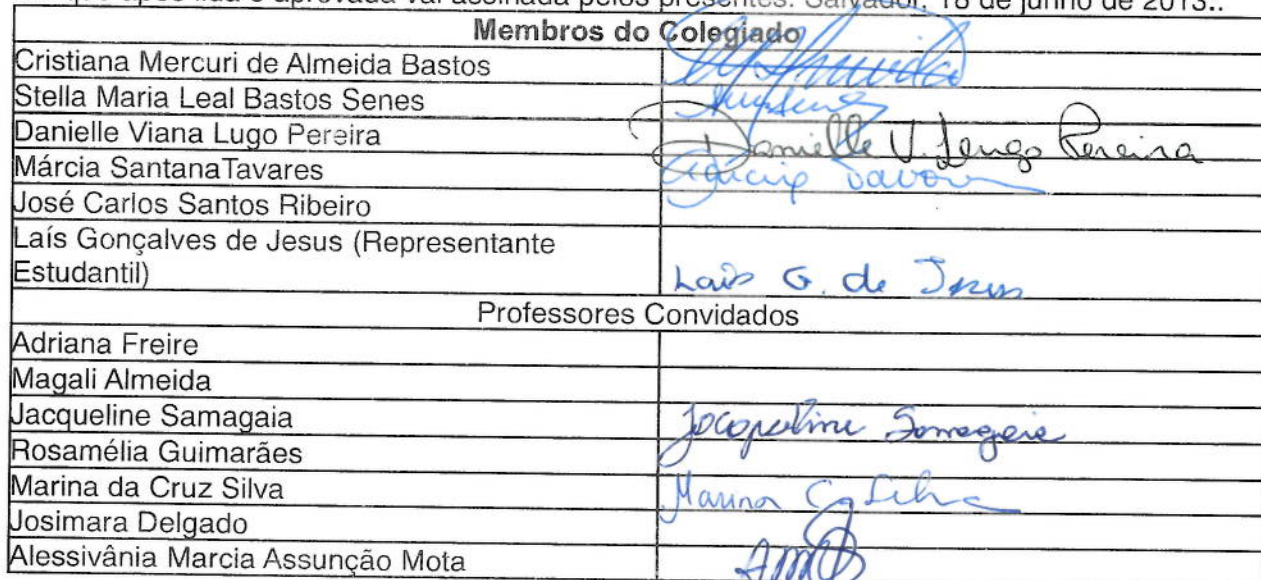 que após lida e aprovada vai assinada pelos presentes. Salvador, 18 de junho de 2013..
Membros do Colegiado
Cristiana Mercuri de Almeida Bastos
Stella Maria Leal Bastos Senes
Danielle Viana Lugo Pereira Danielle V. Lugo Pereira
Márcia SantanaTavares
José Carlos Santos Ribeiro
Laís Gonçalves de Jesus (Representante
Estudantil) Laís G. de Jesus
Professores Convidados
Adriana Freire
Magali Almeida
Jacqueline Samagaia Jacqueline Samagaia
Rosamélia Guimarães
Marina da Cruz Silva Marina C Silva
Josimara Delgado
Alessivânia Marcia Assunção Mota